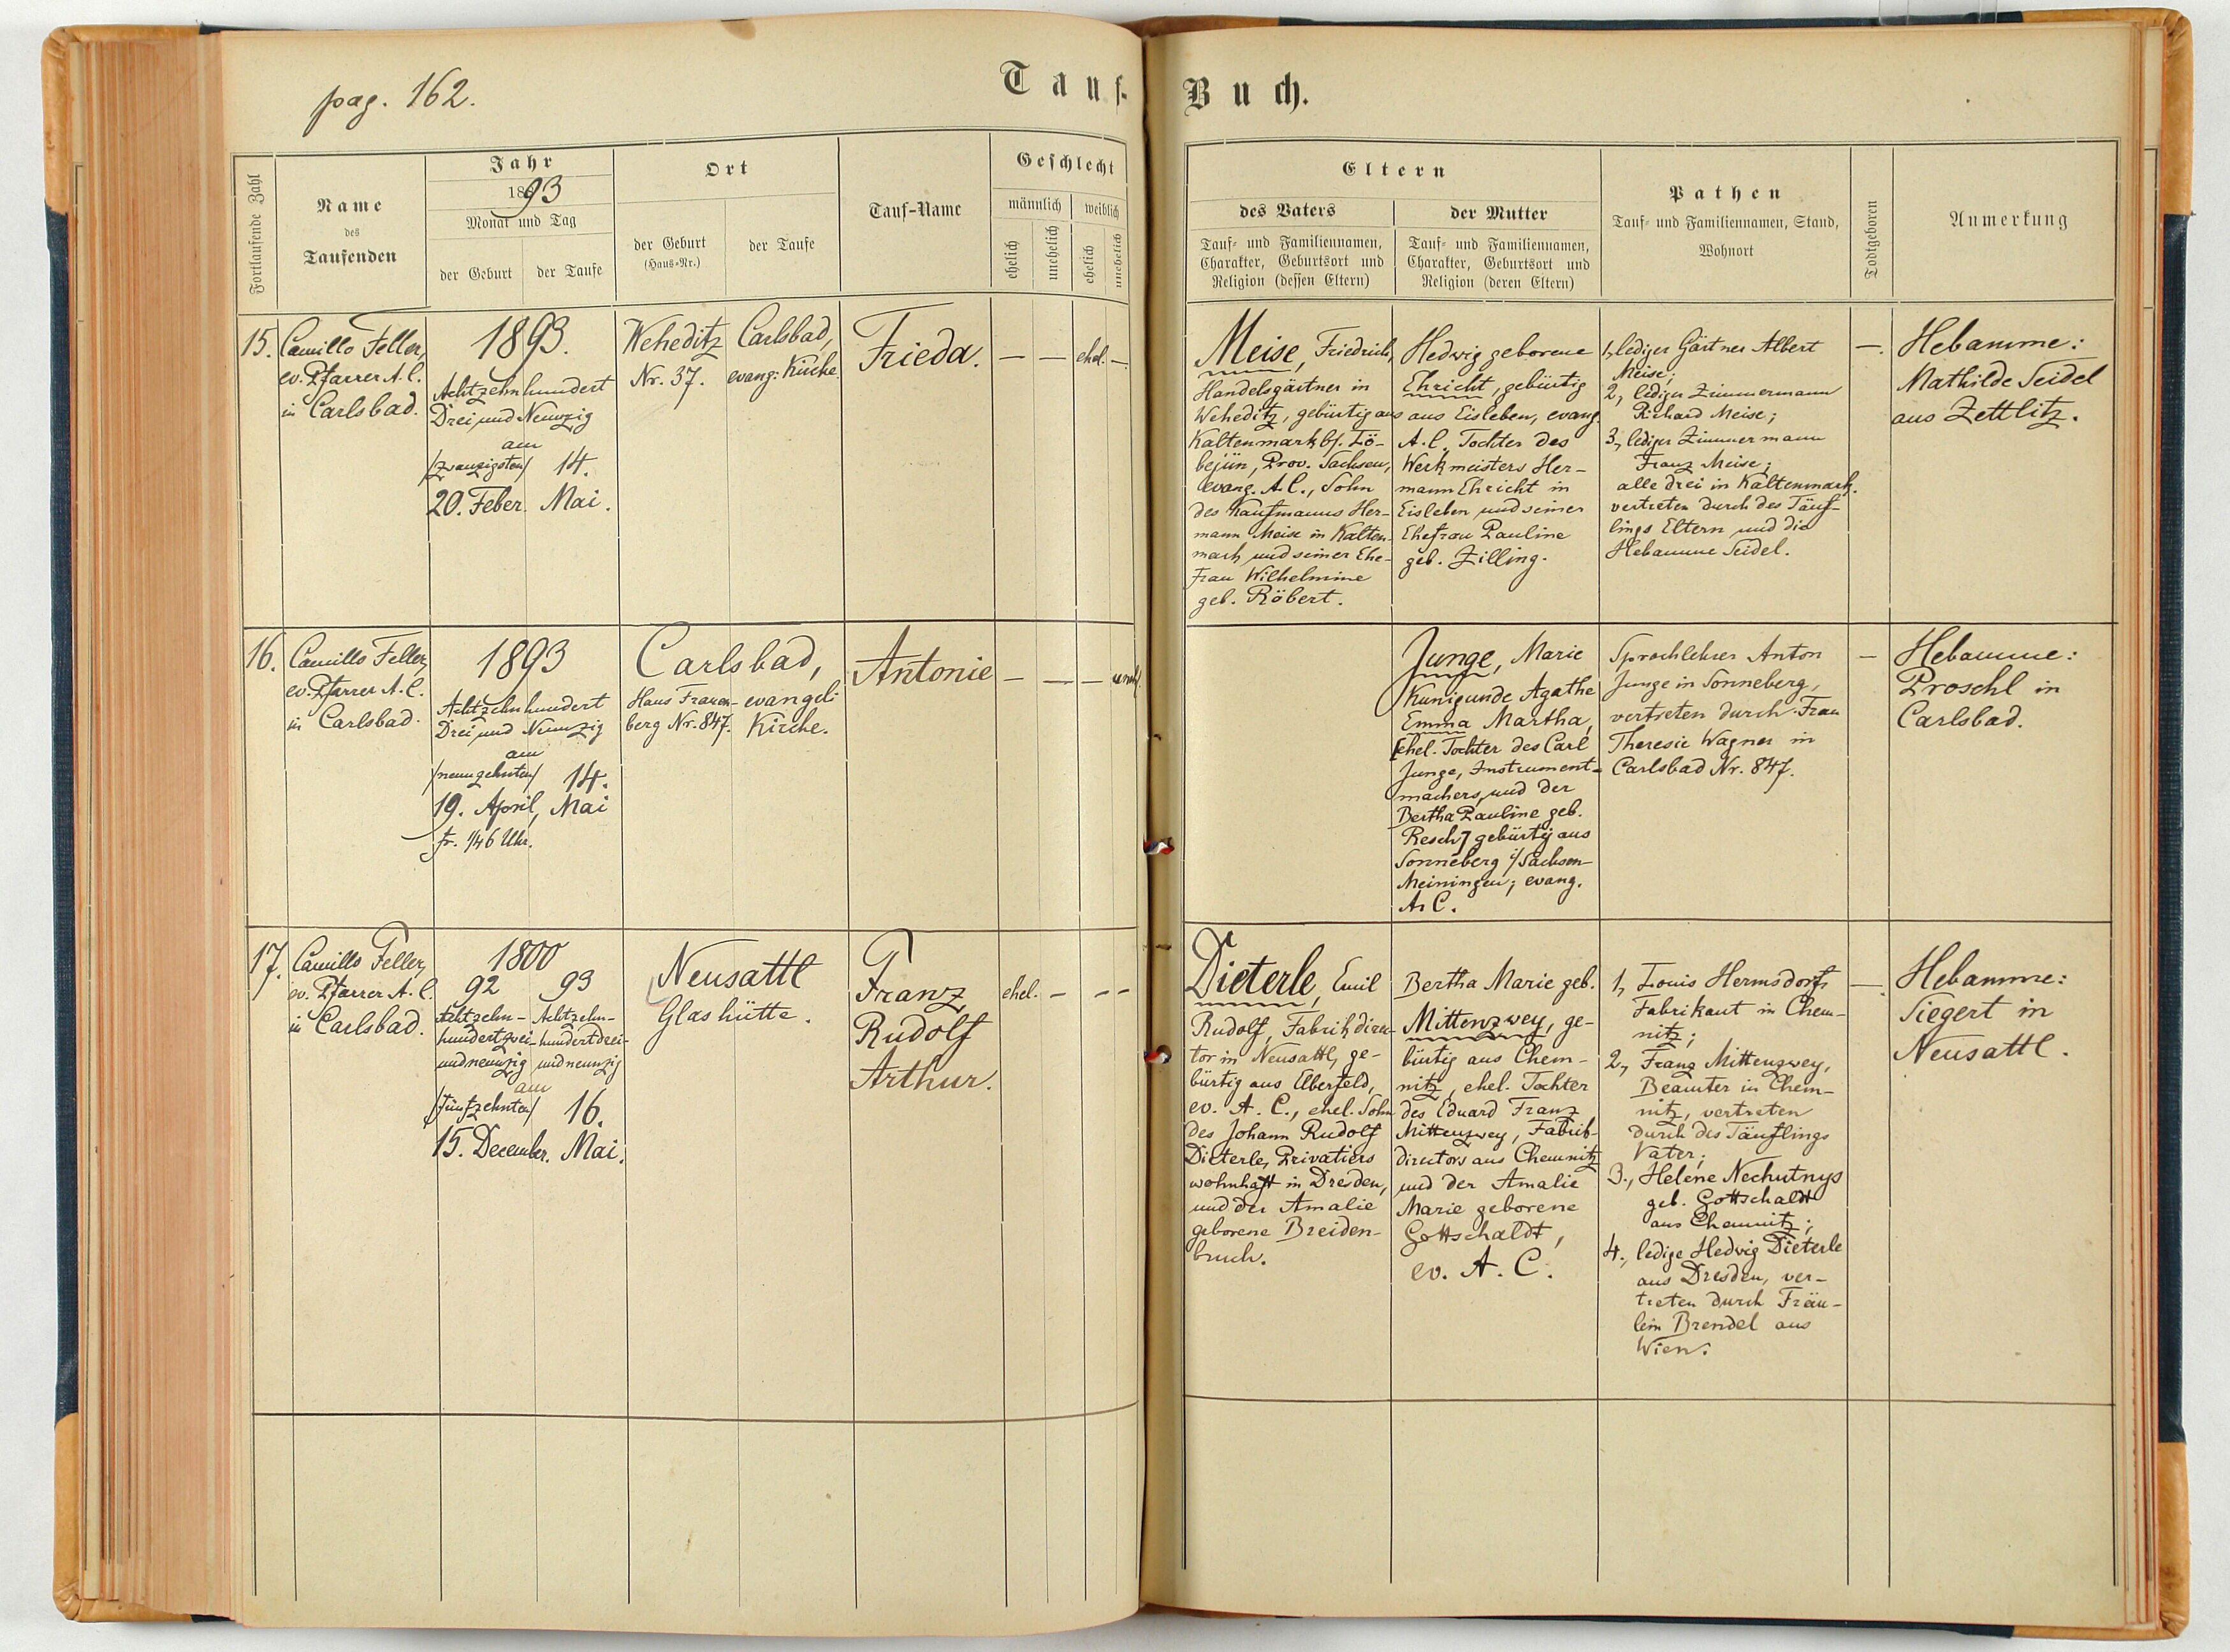 pag. 162.
Tauf-Buch.
Fortlaufende Zahl
Name
des
Taufenden
Jahr
1893
Monat und Tag
der Geburt
der Taufe
Ort
der Geburt
(Haus-Nr.)
der Taufe
Tauf-Name
Geschlecht
männlich
weiblich
ehelich
unehelich
ehelich
unehelich
Eltern
des Vaters
Tauf- und Familiennamen,
Charakter, Geburtsort und
Religion (dessen Eltern)
der Mutter
Tauf- und Familiennamen,
Charakter, Geburtsort und
Religion (deren Eltern)
Pathen
Tauf- und Familiennamen, Stand,
Wohnort
Todtgeboren
Anmerkung
15.
Camillo Feller,
ev. Pfarrer A. C.
in Carlsbad.
1893.
Achtzehnhundert
Drei und Neunzig
am
/zwanzigsten/ 14.
20. Feber. Mai.
Weheditz
Nr. 37.
Carlsbad,
evang: Kirche.
Frieda.
— — ehel. —
Meise, Friedrich,
Handelsgärtner in
Weheditz, gebürtig aus
Kaltenmark b/. Lö-
bejün, Prov. Sachsen,
evang. A. C., Sohn
des Kaufmanns Her-
mann Meise in Kalten-
mark und seiner Ehe-
frau Wilhelmine
geb. Röbert.
Hedwig geborene
Ehricht, gebürtig
aus Eisleben, evang.
A. C., Tochter des
Werkmeisters Her-
mann Ehricht in
Eisleben und seiner
Ehefrau Pauline
geb. Zilling.
1, lediger Gärtner Albert
Meise;
2, lediger Zimmermann
Richard Meise;
3, lediger Zimmermann
Franz Meise;
alle drei in Kaltenmark.
vertreten durch des Täuf-
lings Eltern und die
Hebamme Seidel.
—.
Hebamme:
Mathilde Seidel
aus Zettlitz.
16.
Camillo Feller,
ev. Pfarrer A. C.
in Carlsbad.
1893
Achtzehnhundert
Drei und Neunzig
am
/neunzehnten/ 14.
19. April, Mai
fr. 1/4 6 Uhr.
Carlsbad,
Haus Frauen-
berg Nr. 847.
evangel.
Kirche.
Antonie
— — — unehl.
Junge, Marie
Kunigunde Agathe
Emma Martha,
[ehel. Tochter des Carl
Junge, Instrument-
machers, und der
Bertha Pauline geb.
Resch] gebürtig aus
Sonneberg i/Sachsen-
Meiningen; evang.
A. C.
Sprachlehrer Anton
Junge in Sonneberg,
vertreten durch Frau
Theresie Wagner in
Carlsbad Nr. 847.
—
Hebamme:
Proschl in
Carlsbad.
17.
Camillo Feller,
ev. Pfarrer A. C.
in Carlsbad.
1800
92 93
Achtzehn- Achtzehn-
hundertzwei- hundertdrei-
undneunzig undneunzig
am
/fünfzehnten/ 16.
15. December. Mai.
Neusattl
Glashütte.
Franz
Rudolf
Arthur.
ehel. — — —
Dieterle, Emil
Rudolf, Fabrikdirec-
tor in Neusattl, ge-
bürtig aus Elberfeld,
ev. A. C., ehel. Sohn
des Johann Rudolf
Dieterle, Privatiers
wohnhaft in Dresden,
und der Amalie
geborene Breiden-
bruch.
Bertha Marie geb.
Mittenzwey, ge-
bürtig aus Chem-
nitz, ehel. Tochter
des Eduard Franz
Mittenzwey, Fabrik-
directors aus Chemnitz
und der Amalie
Marie geborene
Gottschaldt,
ev. A. C.
1, Louis Hermsdorf,
Fabrikant in Chem-
nitz;
2, Franz Mittenzwey,
Beamter in Chem-
nitz, vertreten
durch des Täuflings
Vater;
3., Helene Nechutnys
geb. Gottschaldt
aus Chemnitz;
4., ledige Hedwig Dieterle
aus Dresden, ver-
treten durch Fräu-
lein Brendel aus
Wien.
—.
Hebamme:
Siegert in
Neusattl.